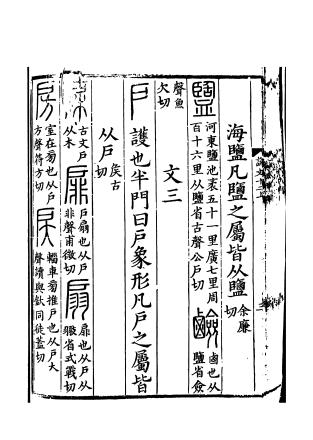 海鹽凡鹽之屬皆从鹽余廉切
盬河東鹽池袤五十一里廣七里周百十六里从鹽省古聲公戶切鹼鹵也从鹽省僉
聲魚欠切　文三
戶護也半門曰戶象形凡戶之屬皆
从戶侯古切
㦿古文戶从木扉戶扇也从戶非聲甫微切扇扉也从戶从翄省式戰切
房室在旁也从戶方聲符方切戾輜車旁推戶也从戶大聲讀與釱同徒蓋切